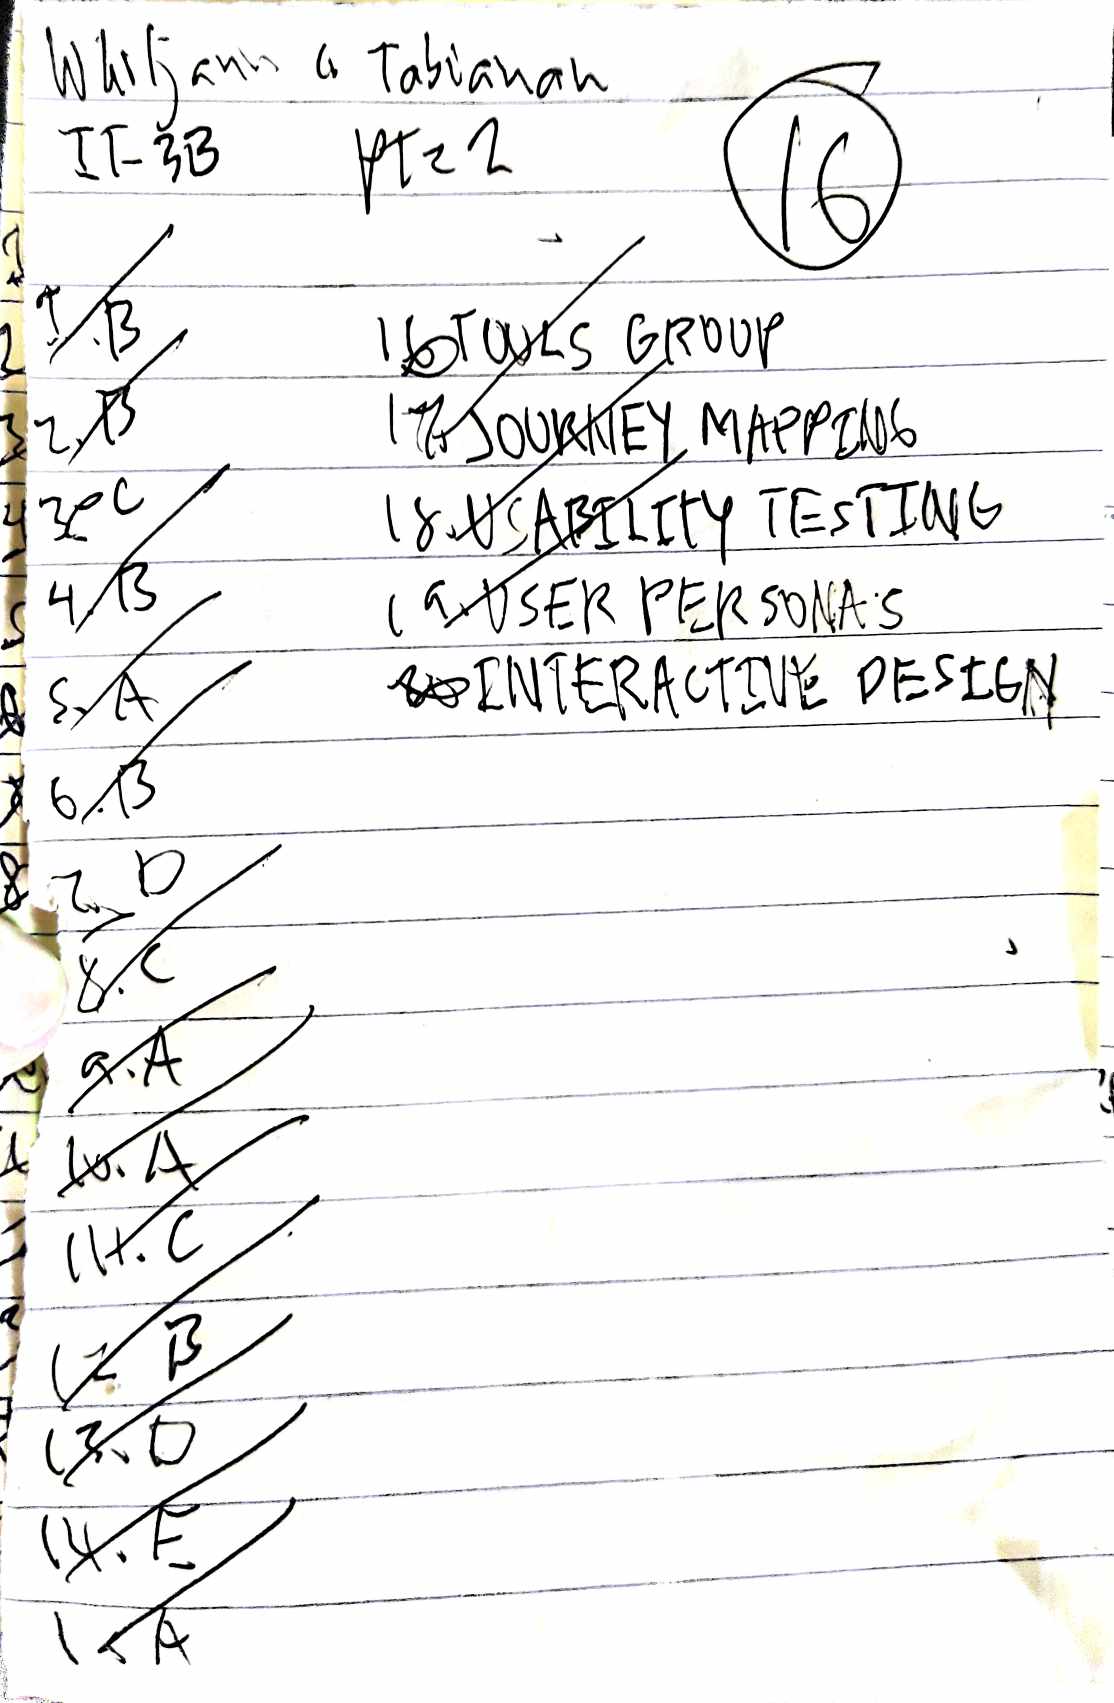 G Tabianan
IT-3B pt=2
16
1. B
2. B
3. C
4. B
5. A
6. B
7. D
8. C
9. A
10. A
11. C
12 B
13. D
14. E
15 A
16 TOOLS GROUP
17. JOURNEY MAPPING
18. USABILITY TESTING
19. USER PERSONA'S
INTERACTIVE DESIGN